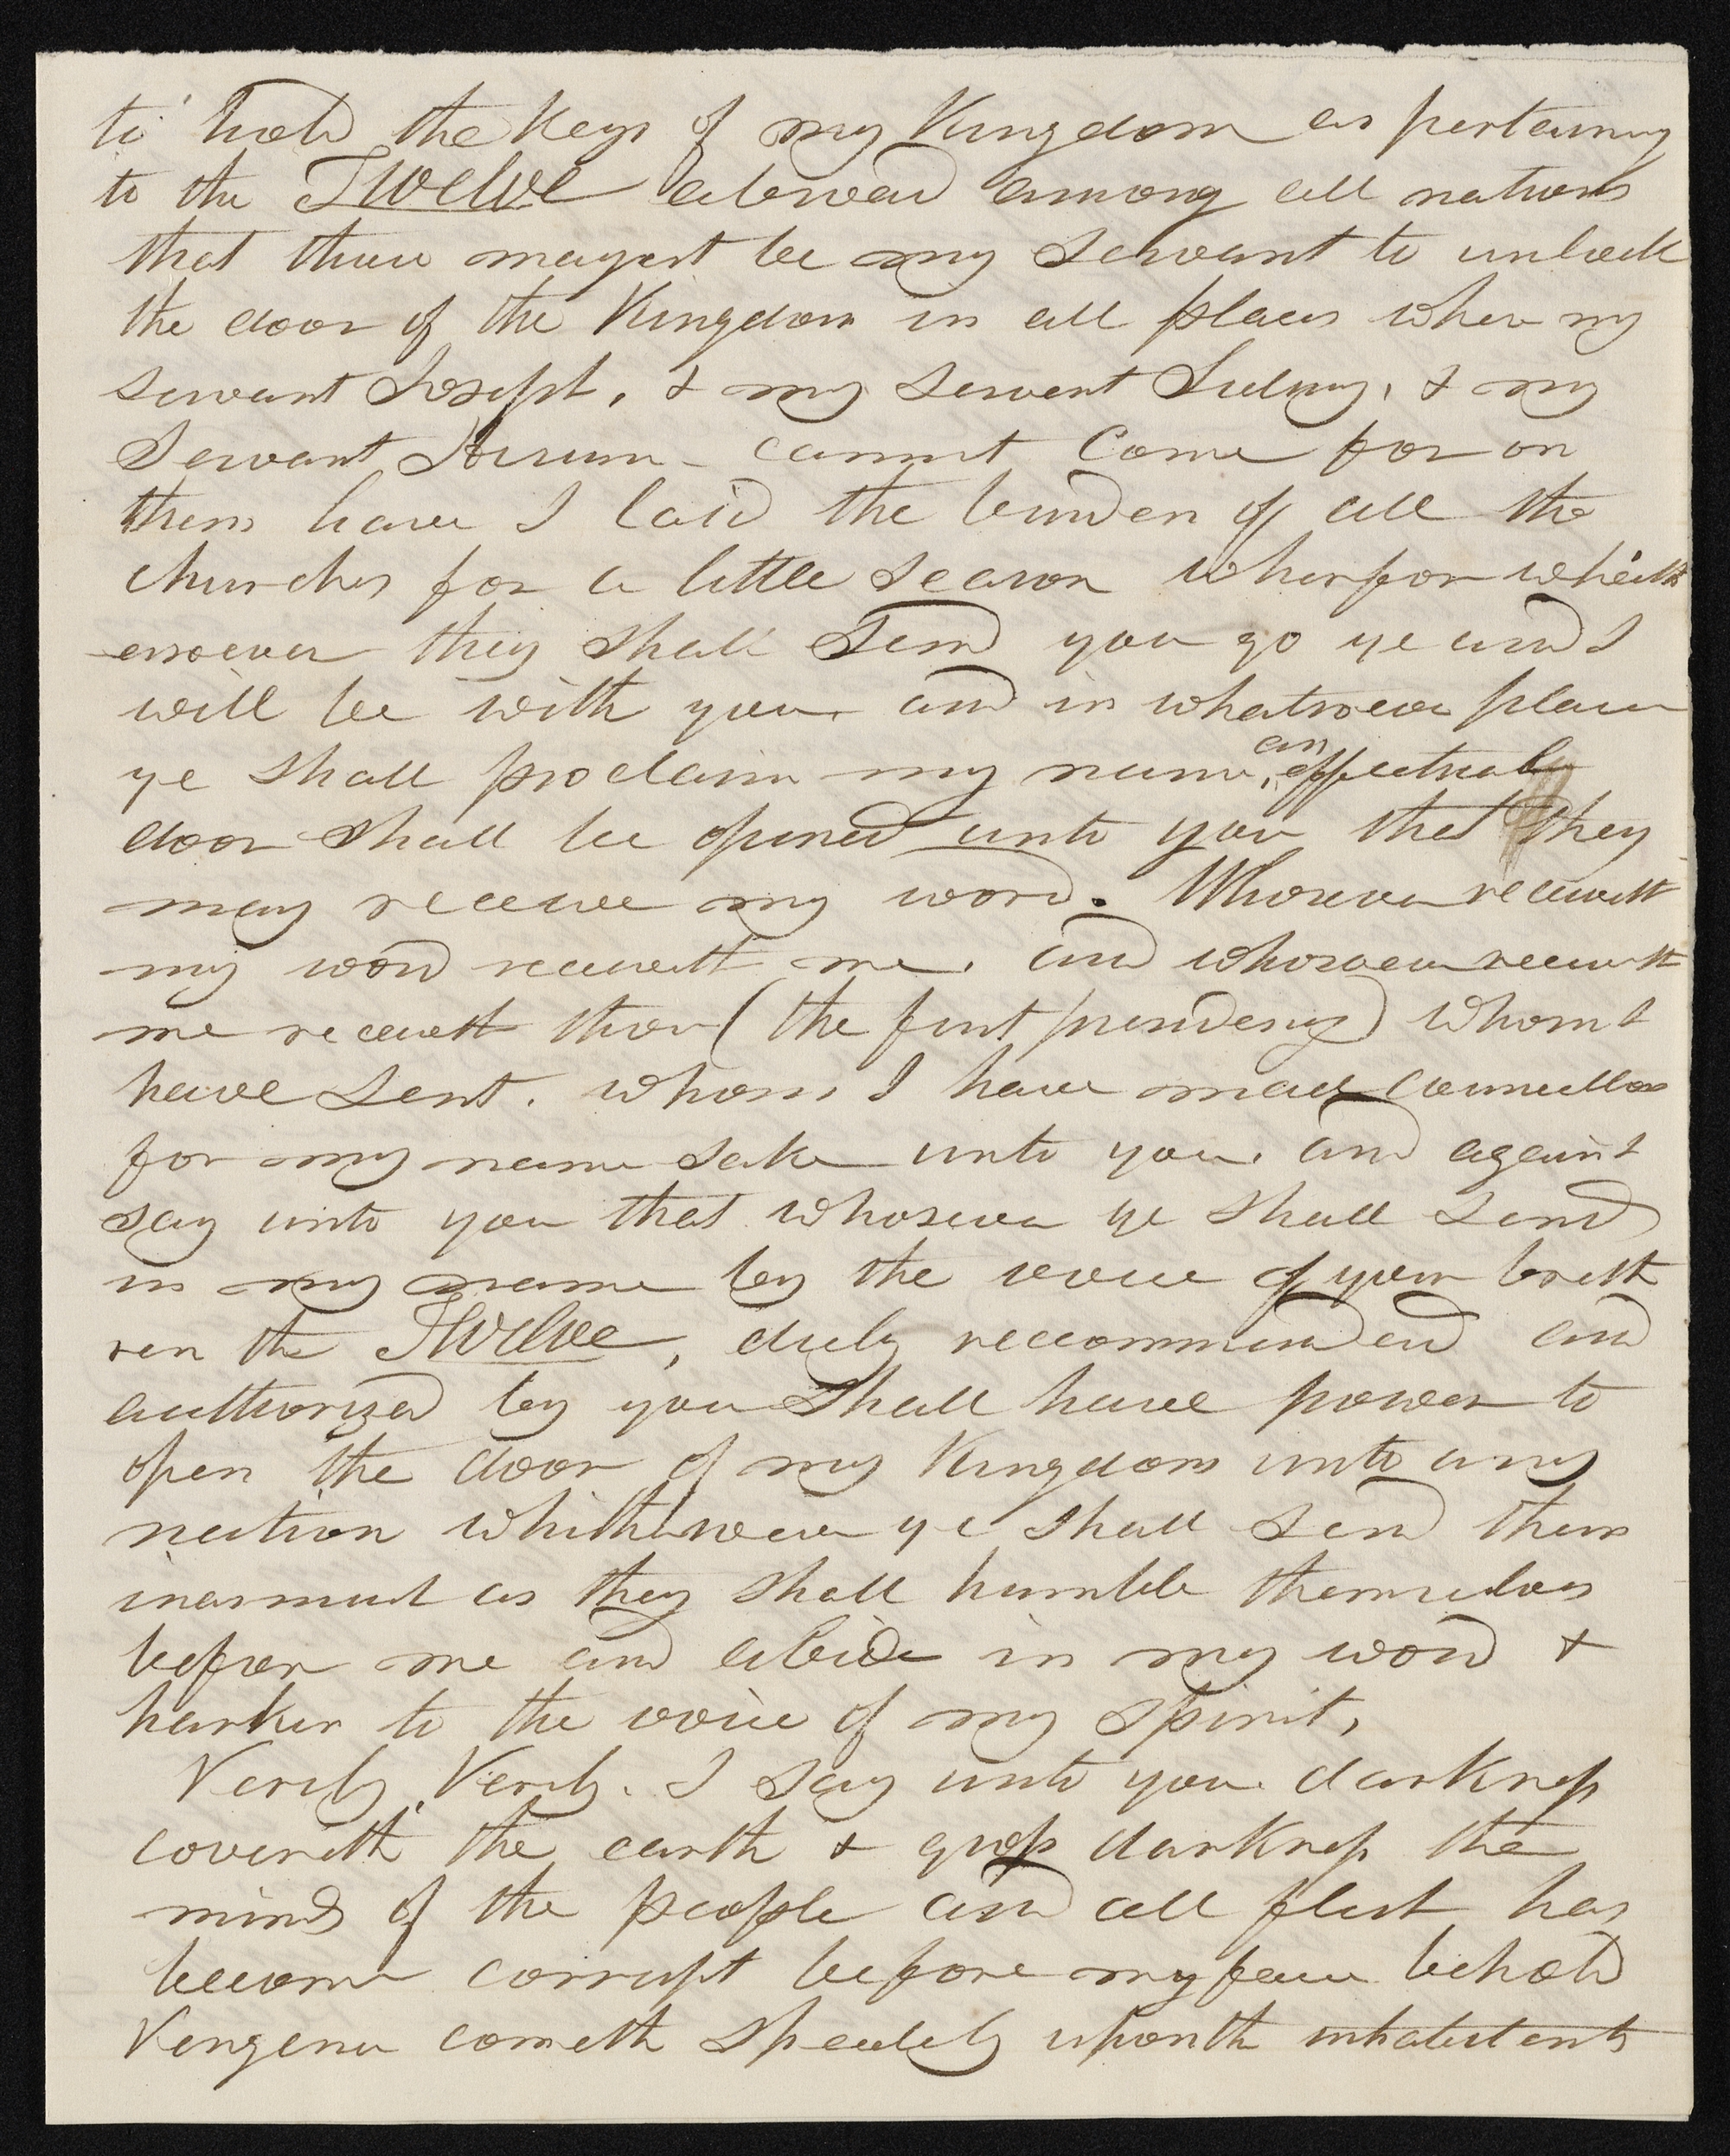 to hold the Keys of my Kingdom as pertaining
to the Twelve abroad among all nations
that thou mayest be my Servant to unlock
the door of the Kingdom in all places where my
servant Joseph, & my servant Sidney, & my
Servant Hirum - cannot Come for on
them have I laid the burden of all the
churches for a little season wherfor whith
ersoever they shall Send you go ye and I
will be with you. and in whatsoever place
ye shall proclaim my name, an effectual
door shall be opened unto you that they
may receive my word. Whosever receiveth
my word receiveth me. and whosoever receiveth
me receiveth those (the first presidency) whom I
have sent. whom I have made councellors
for my name sake unto you. and again I
say unto you that whosever ye shall send
in my name by the voice of your breth
ren the Twelve, duly recommended and
authorized by you Shall have power to
open the door of my Kingdom unto any
nation whithersoever ye shall send them
inasmuch as they shall humble themselves
before me and abide in my word &
harken to the voice of my Spirit,
Verily, Verily. I say unto you. darkness
covereth the earth & gross darkness the
minds of the people and all flesh has
become corrupt before my face behold
Vengence cometh speedily upon the inhabitents